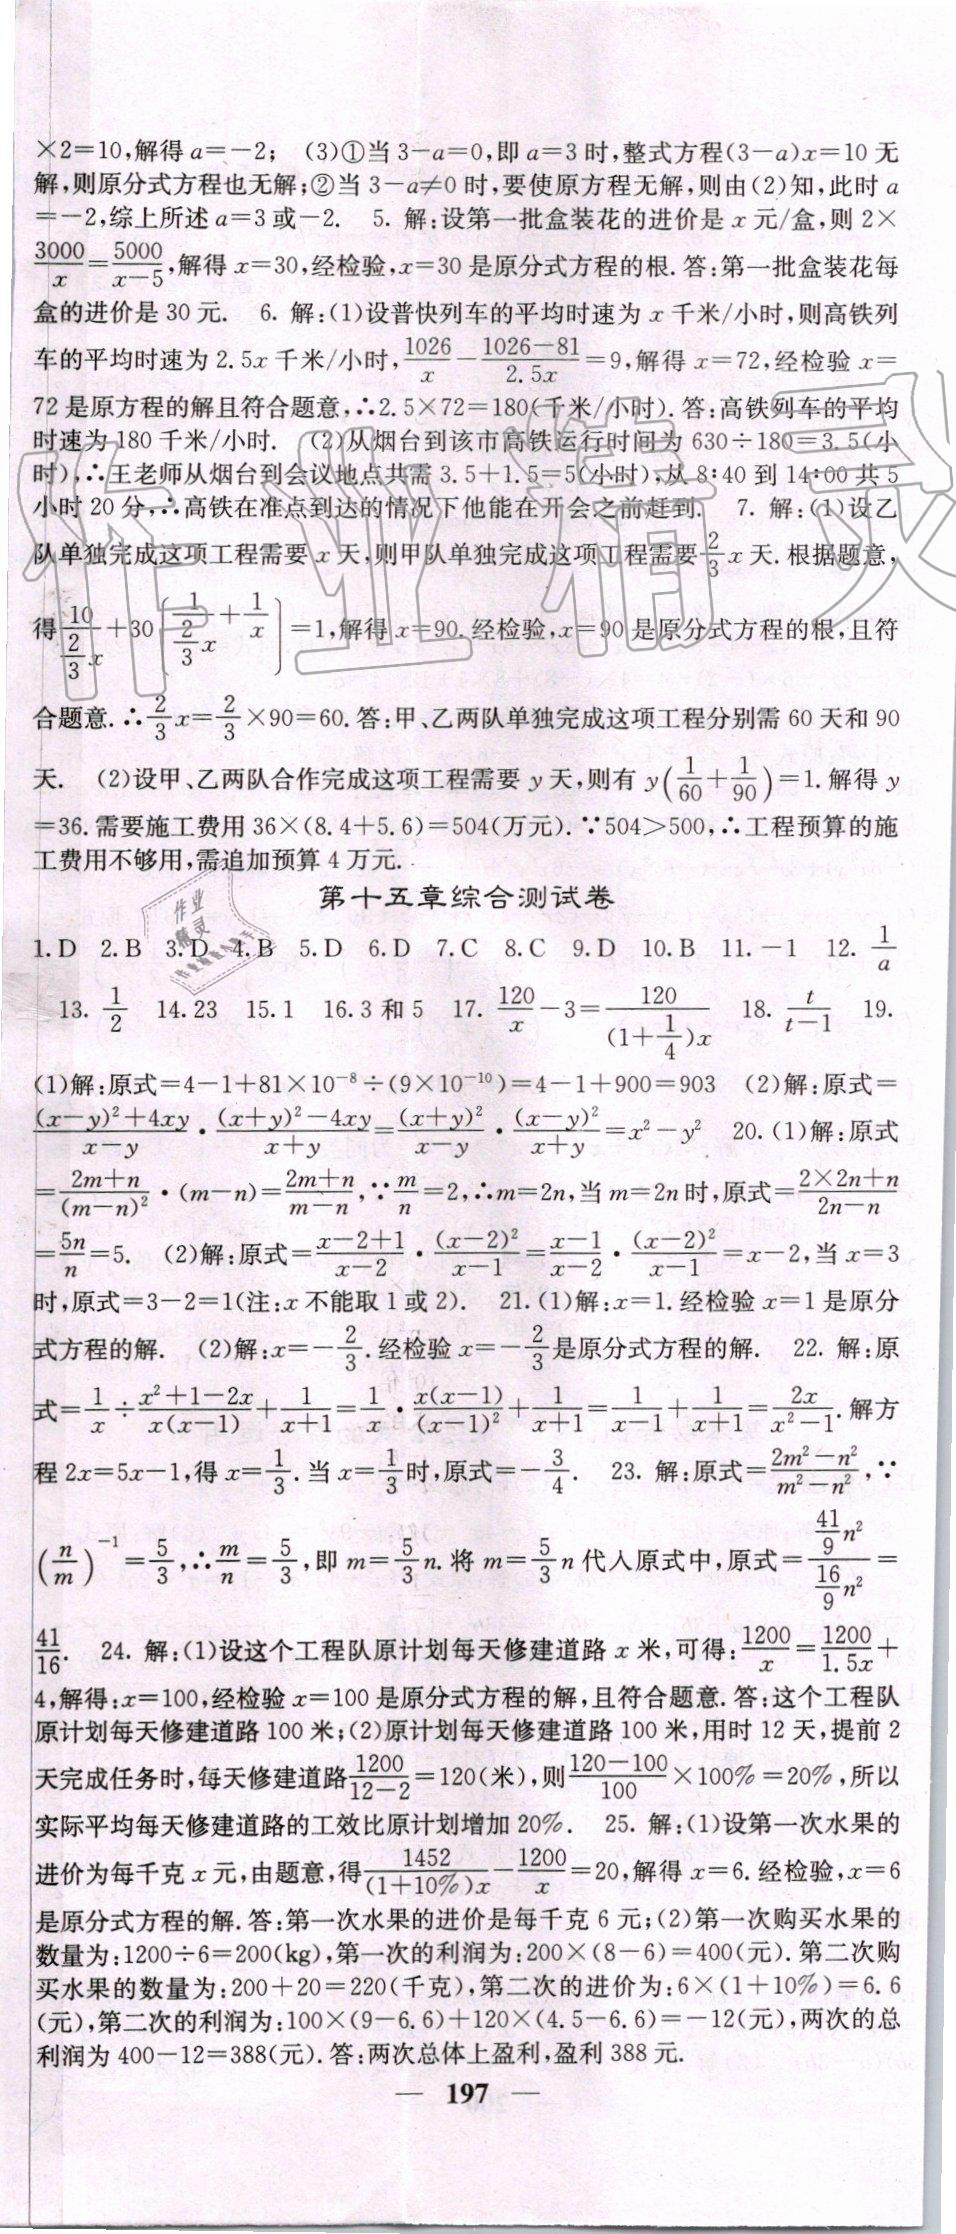 ×2=10,解得 a=-2; (3)①当 3-a=0,即 a=3 时,整式方程(3-a)x=10 无
解,则原分式方程也无解;②当 3-a≠0 时,要使原方程无解,则由(2)知,此时 a
=-2,综上所述 a=3 或-2. 5. 解:设第一批盒装花的进价是 x 元/盒,则 2×
3000/x=5000/(x-5),解得 x=30,经检验,x=30 是原分式方程的根.答:第一批盒装花每
盒的进价是 30 元. 6. 解:(1)设普快列车的平均时速为 x 千米/小时,则高铁列
车的平均时速为 2.5x 千米/小时,1026/x-(1026-81)/2.5x=9,解得 x=72,经检验 x=
72 是原方程的解且符合题意,∴2.5×72=180(千米/小时).答:高铁列车的平均
时速为 180 千米/小时. (2)从烟台到该市高铁运行时间为 630÷180=3.5(小
时),∴王老师从烟台到会议地点共需 3.5+1.5=5(小时),从 8:40 到 14:00 共 5
小时 20 分,∴高铁在准点到达的情况下他能在开会之前赶到. 7. 解:(1)设乙
队单独完成这项工程需要 x 天,则甲队单独完成这项工程需要 2/3 x 天.根据题意,
得 10/(2/3 x)+30(1/(2/3 x)+1/x)=1,解得 x=90.经检验,x=90 是原分式方程的根,且符
合题意.∴2/3 x=2/3×90=60.答:甲、乙两队单独完成这项工程分别需 60 天和 90
天. (2)设甲、乙两队合作完成这项工程需要 y 天,则有 y(1/60+1/90)=1.解得 y
=36.需要施工费用 36×(8.4+5.6)=504(万元).∵504>500,∴工程预算的施
工费用不够用,需追加预算 4 万元.
第十五章综合测试卷
1.D 2.B 3.D 4.B 5.D 6.D 7.C 8.C 9.D 10.B 11.-1 12. 1/a
13. 1/2 14.23 15.1 16.3 和 5 17. 120/x-3=120/((1+1/4)x) 18. t/(t-1) 19.
(1)解:原式=4-1+81×10⁻⁸÷(9×10⁻¹⁰)=4-1+900=903 (2)解:原式=
((x-y)²+4xy)/(x-y)·((x+y)²-4xy)/(x+y)=(x+y)²/(x-y)·(x-y)²/(x+y)=x²-y² 20.(1)解:原式
=(2m+n)/(m-n)²·(m-n)=(2m+n)/(m-n),∵m/n=2,∴m=2n,当 m=2n 时,原式=(2×2n+n)/(2n-n)
=5n/n=5. (2)解:原式=(x-2+1)/(x-2)·(x-2)²/(x-1)=(x-1)/(x-2)·(x-2)²/(x-1)=x-2,当 x=3
时,原式=3-2=1(注:x 不能取 1 或 2). 21.(1)解:x=1.经检验 x=1 是原分
式方程的解. (2)解:x=-2/3.经检验 x=-2/3 是原分式方程的解. 22. 解:原
式=1/x÷(x²+1-2x)/(x(x-1))+1/(x+1)=1/x·x(x-1)/(x-1)²+1/(x+1)=1/(x-1)+1/(x+1)=2x/(x²-1).解方
程 2x=5x-1,得 x=1/3.当 x=1/3 时,原式=-3/4. 23. 解:原式=(2m²-n²)/(m²-n²),∵
(n/m)⁻¹=5/3,∴m/n=5/3,即 m=5/3 n.将 m=5/3 n 代入原式中,原式=(41/9 n²)/(16/9 n²)=
41/16. 24. 解:(1)设这个工程队原计划每天修建道路 x 米,可得:1200/x=1200/1.5x+
4,解得:x=100,经检验 x=100 是原分式方程的解,且符合题意.答:这个工程队
原计划每天修建道路 100 米;(2)原计划每天修建道路 100 米,用时 12 天,提前 2
天完成任务时,每天修建道路 1200/(12-2)=120(米),则(120-100)/100×100%=20%,所以
实际平均每天修建道路的工效比原计划增加 20%. 25. 解:(1)设第一次水果的
进价为每千克 x 元,由题意,得 1452/((1+10%)x)-1200/x=20,解得 x=6.经检验,x=6
是原分式方程的解.答:第一次水果的进价是每千克 6 元;(2)第一次购买水果的
数量为:1200÷6=200(kg),第一次的利润为:200×(8-6)=400(元).第二次购
买水果的数量为:200+20=220(千克),第二次的进价为:6×(1+10%)=6.6
(元),第二次的利润为:100×(9-6.6)+120×(4.5-6.6)=-12(元),两次的总
利润为 400-12=388(元).答:两次总体上盈利,盈利 388 元.
— 197 —
作业精灵
作业
精灵